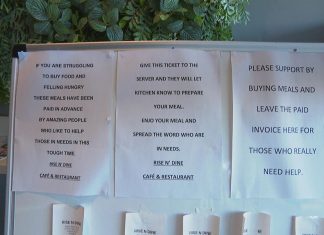 IF YOU ARE STRUGGLING
TO BUY FOOD AND
FELLING HUNGRY
THESE MEALS HAVE BEEN
PAID IN ADVANCE
BY AMAZING PEOPLE
WHO LIKE TO HELP
THOSE IN NEEDS IN THIS
TOUGH TIME
RISE N' DINE
CAFÉ & RESTAURANT
GIVE THIS TICKET TO THE
SERVER AND THEY WILL LET
KITCHEN KNOW TO PREPARE
YOUR MEAL.
ENJO YOUR MEAL AND
SPREAD THE WORD WHO ARE
IN NEEDS.
RISE N' DINE
CAFÉ & RESTAURANT
PLEASE SUPPORT BY
BUYING MEALS AND
LEAVE THE PAID
INVOICE HERE FOR
THOSE WHO REALLY
NEED HELP.
RISE N' DINE
RISE N' DINE
RISE N' DINE